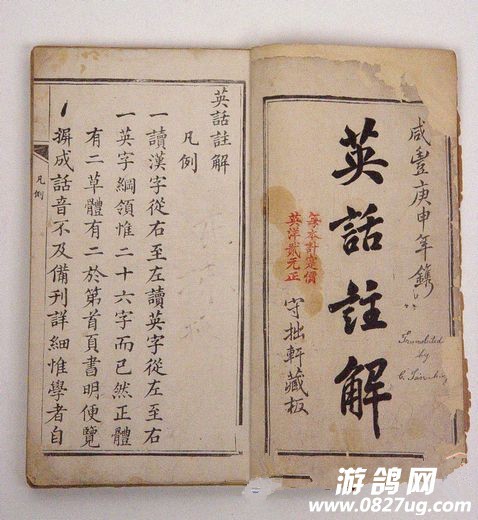 咸豐庚申年鐫
英話註解
每本計定價
英洋貳元正
守拙軒藏板
Translated
by
英話註解
凡例
一讀漢字從右至左讀英字從左至右
一英字綱領惟二十六字而已然正體
有二草體有二於第首頁書明便覽
摒成話音不及備刊詳細惟學者自
凡例
游鸽网
www.0827ug.com